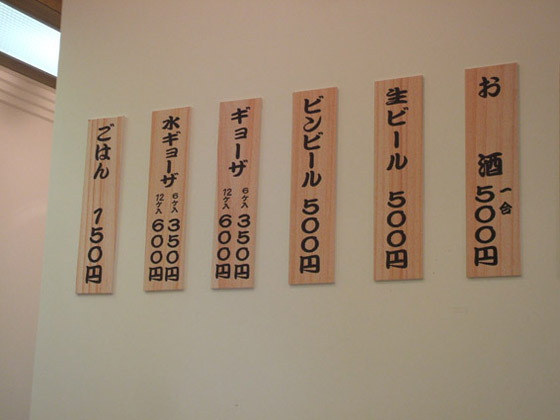 お酒 一合 500円
生ビール 500円
ビンビール 500円
ギョーザ
6ヶ入 350円
12ヶ入 600円
水ギョーザ
6ヶ入 350円
12ヶ入 600円
ごはん 150円